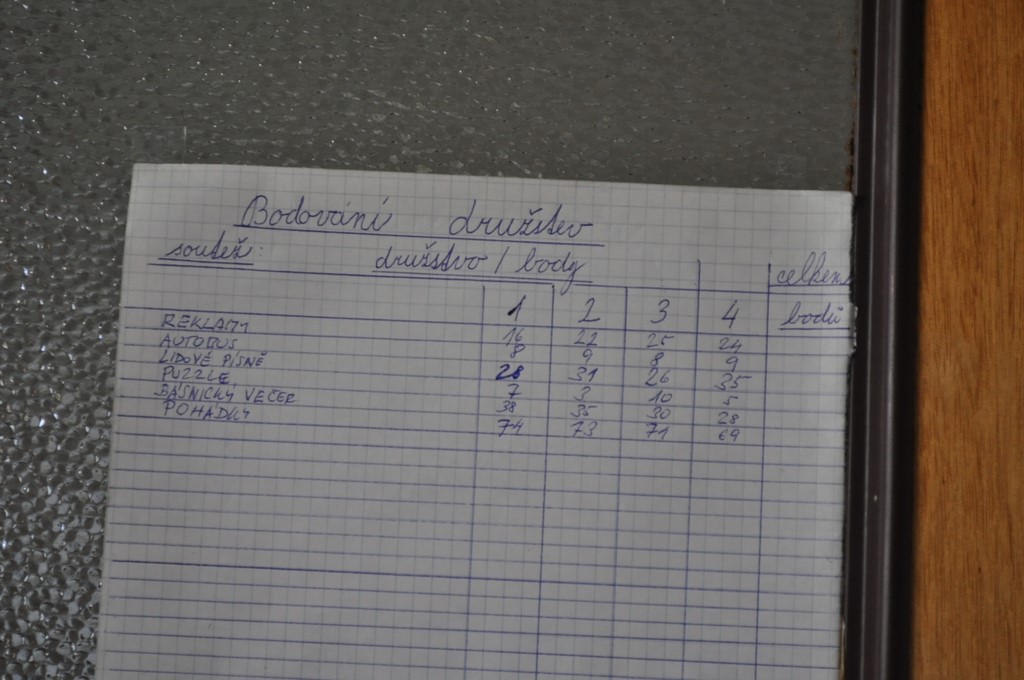 Bodování družstev
soutěž: družstvo / body celkem
1 2 3 4 bodů
REKLAMY 16 22 25 24
AUTOBUS 8 9 8 9
LIDOVÉ PÍSNĚ 28 31 26 35
PUZZLE 7 3 10 5
BÁSNICKÝ VEČER 38 35 30 28
POHÁDKY 74 73 71 69